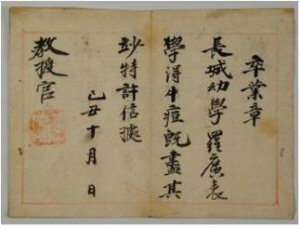 卒業章
長城幼學羅廣表
學得牛痘旣盡其
玅特許信據
己丑十月 日
敎授官